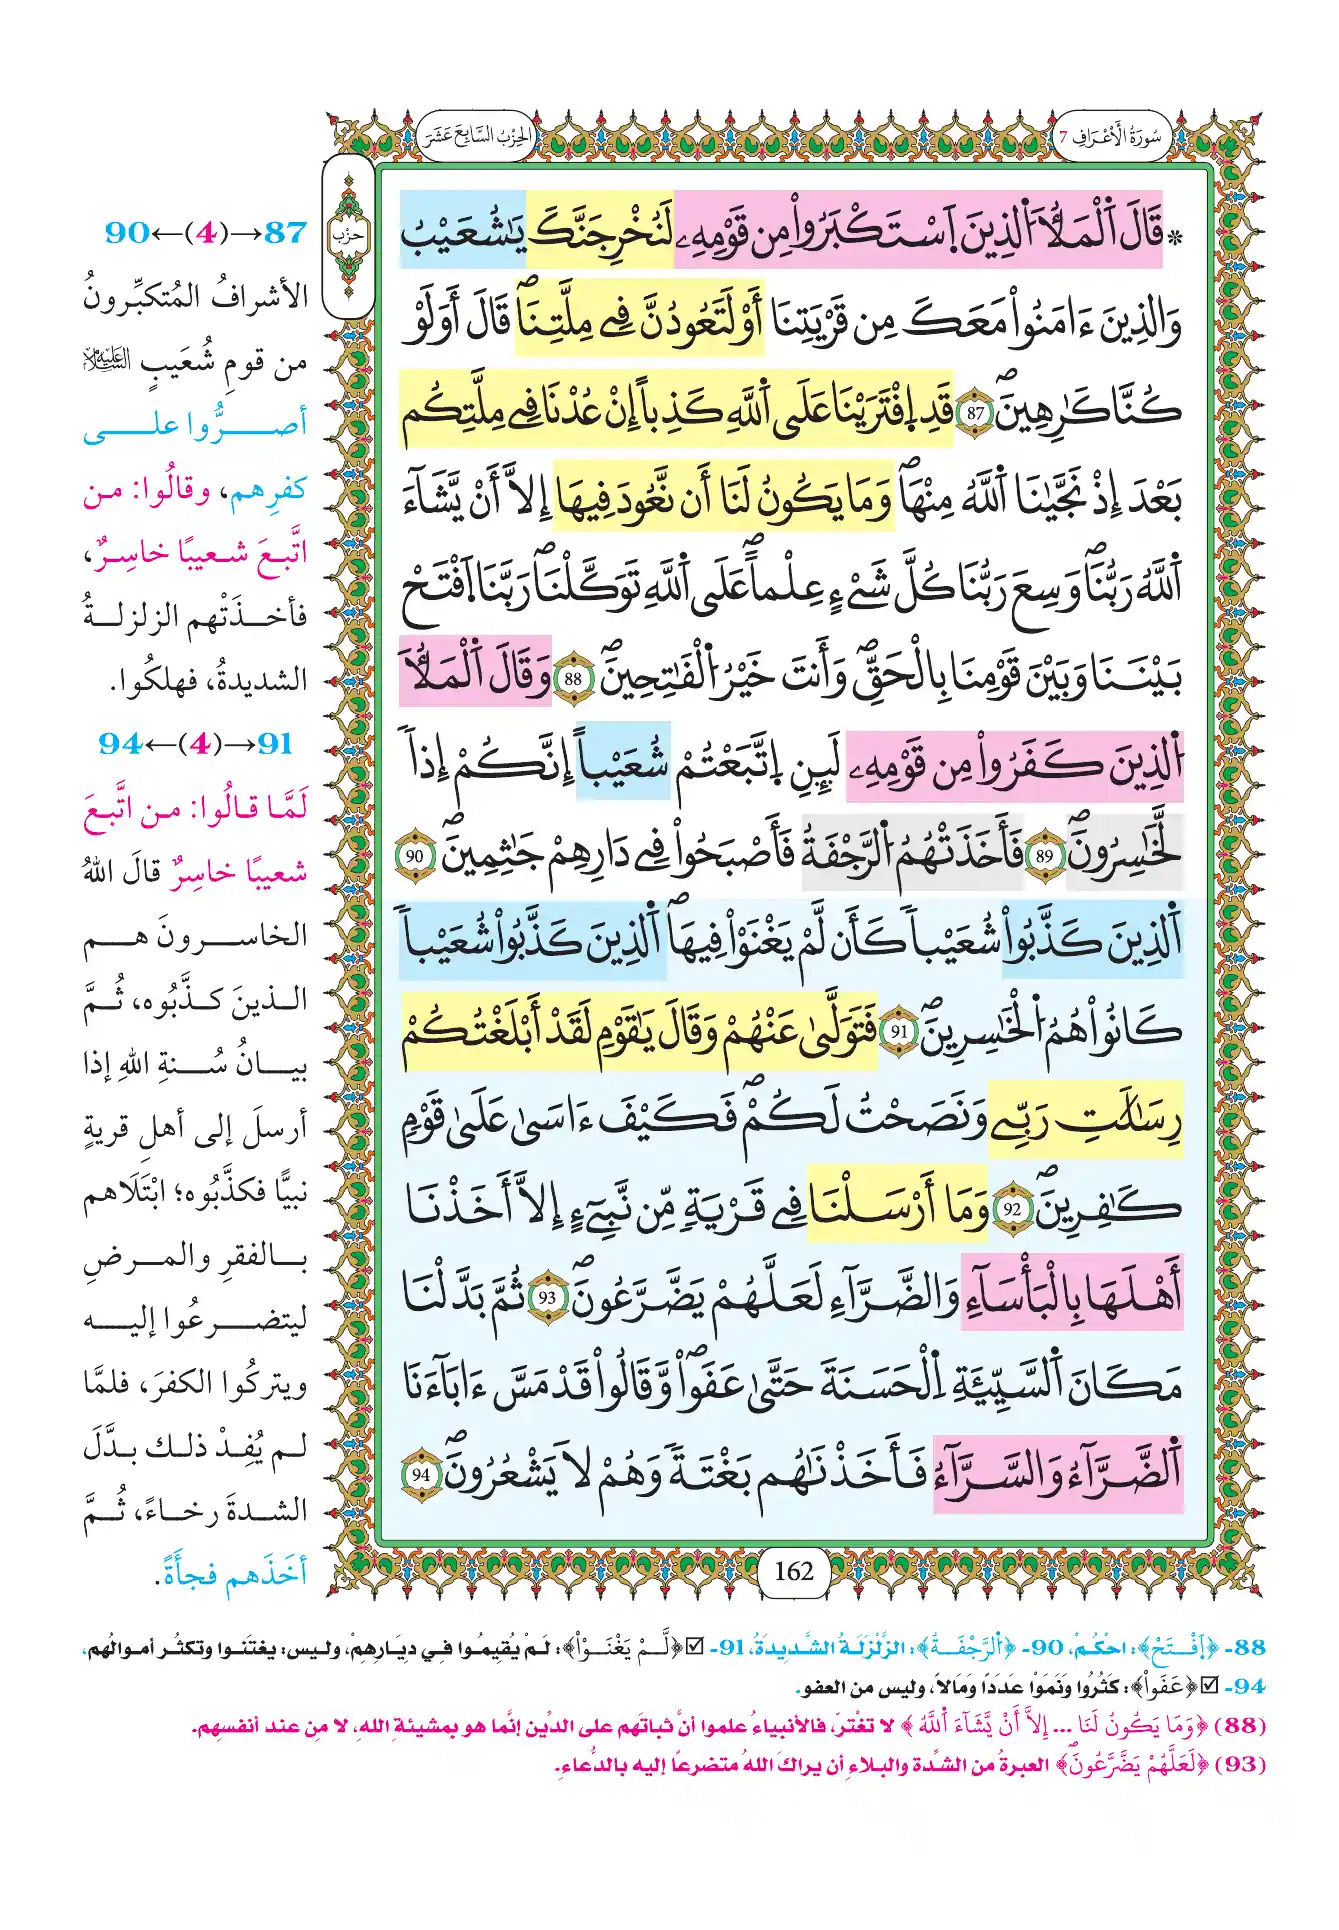 سُورَةُ الْأَعْرَافِ 7
الحِزْبُ السَّابِعَ عَشَرَ
حِزْب
* قَالَ اَ۬لْمَلَأُ اُ۬لذِينَ اَ۪سْتَكْبَرُواْ مِن قَوْمِهِۦ لَنُخْرِجَنَّكَ يَٰشُعَيْبُ
وَالذِينَ ءَامَنُواْ مَعَكَ مِن قَرْيَتِنَا أَوْ لَتَعُودُنَّ فِے مِلَّتِنَاۖ قَالَ أَوَلَوْ
كُنَّا كَٰرِهِينَۖ 87 قَدِ اِ۪فْتَرَيْنَا عَلَى اَ۬للَّهِ كَذِباً إِنْ عُدْنَا فِے مِلَّتِكُم
بَعْدَ إِذْ نَجَّيٰنَا اَ۬للَّهُ مِنْهَاۖ وَمَا يَكُونُ لَنَا أَن نَّعُودَ فِيهَا إِلَّا أَنْ يَّشَآءَ
اَ۬للَّهُ رَبُّنَاۖ وَسِعَ رَبُّنَا كُلَّ شَےْءٍ عِلْماًۖ عَلَى اَ۬للَّهِ تَوَكَّلْنَاۖ رَبَّنَا اَ۪فْتَحْ
بَيْنَنَا وَبَيْنَ قَوْمِنَا بِالْحَقِّۖ وَأَنتَ خَيْرُ اُ۬لْفَٰتِحِينَۖ 88 وَقَالَ اَ۬لْمَلَأُ
اُ۬لذِينَ كَفَرُواْ مِن قَوْمِهِۦ لَئِنِ اِ۪تَّبَعْتُمْ شُعَيْباً إِنَّكُمْ إِذاً
لَّخَٰسِرُونَۖ 89 فَأَخَذَتْهُمُ اُ۬لرَّجْفَةُ فَأَصْبَحُواْ فِے دَارِهِمْ جَٰثِمِينَۖ 90
اَ۬لذِينَ كَذَّبُواْ شُعَيْباً كَأَن لَّمْ يَغْنَوْاْ فِيهَاۖ اَ۬لذِينَ كَذَّبُواْ شُعَيْباً
كَانُواْ هُمُ اُ۬لْخَٰسِرِينَۖ 91 فَتَوَلَّىٰ عَنْهُمْ وَقَالَ يَٰقَوْمِ لَقَدْ أَبْلَغْتُكُمْ
رِسَٰلَٰتِ رَبِّے وَنَصَحْتُ لَكُمْۖ فَكَيْفَ ءَاسَىٰ عَلَىٰ قَوْمٍ
كَٰفِرِينَۖ 92 وَمَا أَرْسَلْنَا فِے قَرْيَةٍ مِّن نَّبِےٓءٍ اِلَّا أَخَذْنَا
أَهْلَهَا بِالْبَأْسَآءِ وَالضَّرَّآءِ لَعَلَّهُمْ يَضَّرَّعُونَۖ 93 ثُمَّ بَدَّلْنَا
مَكَانَ اَ۬لسَّيِّئَةِ اِ۬لْحَسَنَةَ حَتَّىٰ عَفَواْۖ وَّقَالُواْ قَدْ مَسَّ ءَابَآءَنَا
اَ۬لضَّرَّآءُ وَالسَّرَّآءُ فَأَخَذْنَٰهُم بَغْتَةً وَهُمْ لَا يَشْعُرُونَۖ 94
162
87→(4)←90
الأشرافُ المُتكبِّرونُ
من قومِ شُعَيبٍ عليه السلام
أصـرُّوا علـى
كفرِهم، وقالُوا: من
اتَّبعَ شعيبًا خاسِرٌ،
فأخذَتْهم الزلزلةُ
الشديدةُ، فهلكُوا.
91→(4)←94
لَمَّا قالُوا: من اتَّبعَ
شعيبًا خاسِرٌ قالَ اللهُ
الخاسرونَ هم
الذينَ كذَّبُوه، ثُمَّ
بيانُ سُنةِ اللهِ إذا
أرسلَ إلى أهلِ قريةٍ
نبيًّا فكذَّبُوه؛ ابْتَلَاهم
بالفقرِ والمرضِ
ليتضرعُوا إليه
ويتركُوا الكفرَ، فلمَّا
لم يُفِدْ ذلك بدَّلَ
الشدةَ رخاءً، ثُمَّ
أخَذَهم فجأَةً.
88- ﴿اَ۪فْتَحْ﴾: احْكُمْ، 90- ﴿اُ۬لرَّجْفَةُ﴾: الزَّلْزَلَةُ الشَّدِيدَةُ، 91- ☑ ﴿لَّمْ يَغْنَوْاْ﴾: لَمْ يُقِيمُوا فِي دِيَارِهِمْ، وليس: يغتنوا وتكثُر أموالُهم،
94- ☑ ﴿عَفَواْ﴾: كَثُرُوا وَنَمَوْا عَدَدًا وَمَالاً، وليس من العفو.
(88) ﴿وَمَا يَكُونُ لَنَا ... إِلَّا أَنْ يَّشَآءَ اَ۬للَّهُ﴾ لا تغْترّ، فالأنبياءُ علموا أنَّ ثباتَهم على الدِّين إنَّما هو بمشيئةِ اللهِ، لا مِن عند أنفسِهم.
(93) ﴿لَعَلَّهُمْ يَضَّرَّعُونَۖ﴾ العبرةُ من الشِّدة والبلاءِ أن يراكَ اللهُ متضرعًا إليه بالدُّعاءِ.